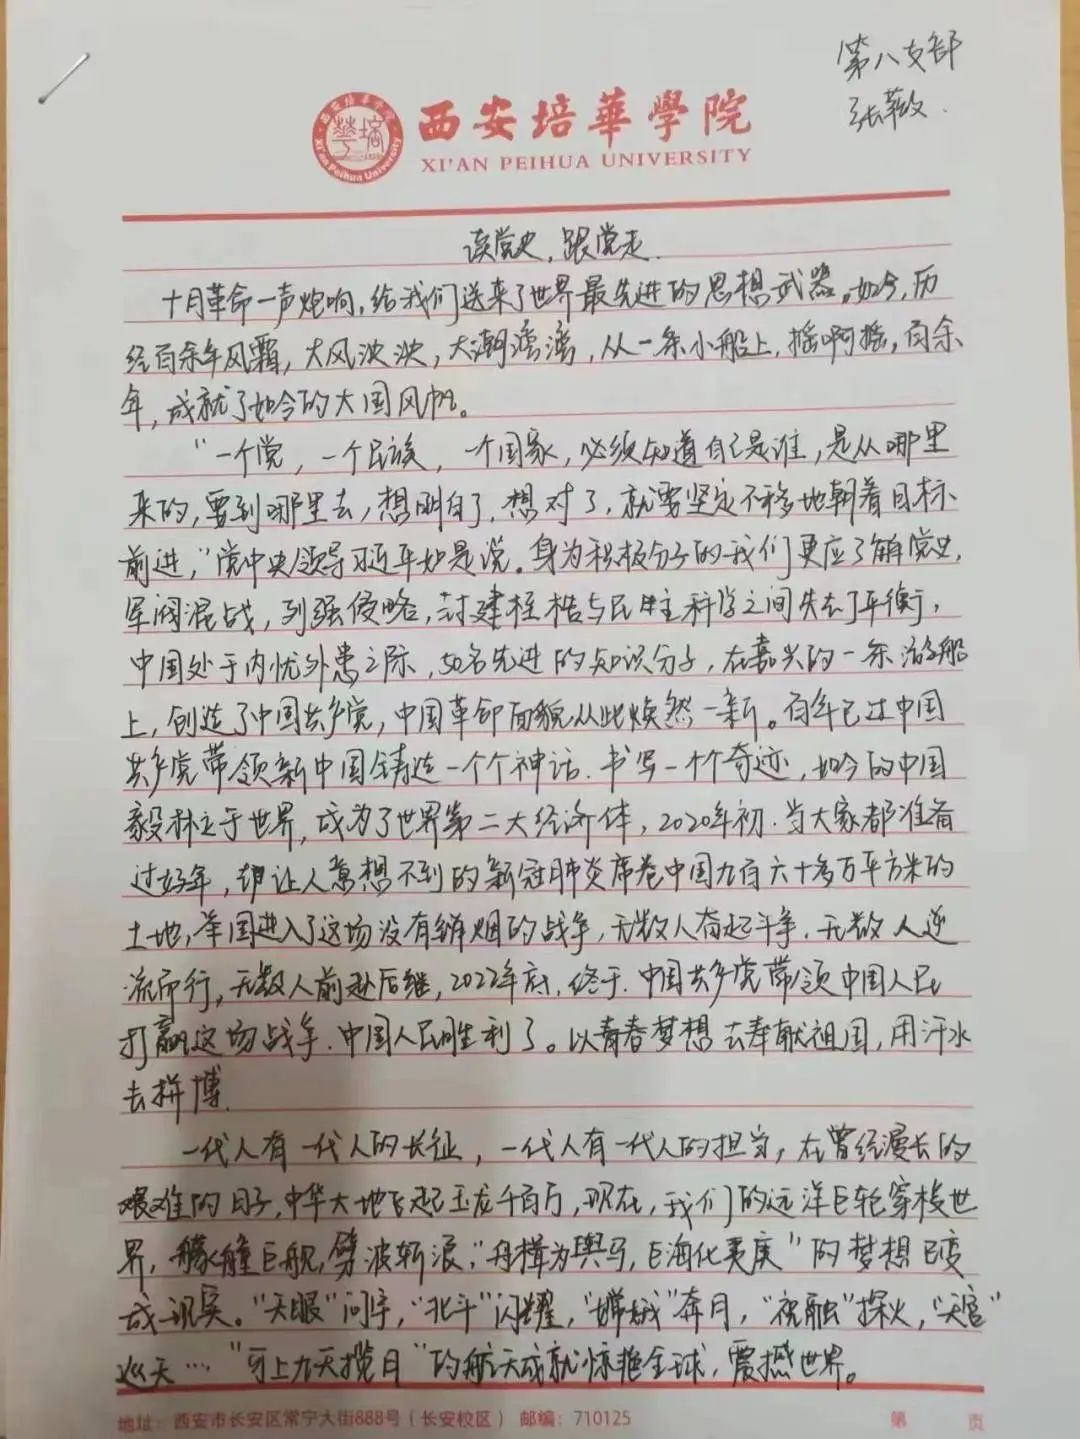 第八支部
张薇
西安培華學院
XI'AN PEIHUA UNIVERSITY
西安培華學院
Xi'an Peihua University
读党史,跟党走.
十月革命一声炮响,给我们送来了世界最先进的思想武器。如今,历
经百余年风霜,大风泱泱,大潮滂滂,从一条小船上,摇啊摇,百余
年,成就了如今的大国风帆。
“一个党,一个民族,一个国家,必须知道自己是谁,是从哪里
来的,要到哪里去,想明白了,想对了,就要坚定不移地朝着目标
前进,”党中央领导习近平如是说。身为积极分子的我们更应了解党史,
军阀混战,列强侵略,封建桎梏与民主科学之间失去了平衡,
中国处于内忧外患之际,50名先进的知识分子,在嘉兴的一条游船
上,创造了中国共产党,中国革命面貌从此焕然一新。百年已过中国
共产党带领新中国铸造一个个神话.书写一个个奇迹,如今的中国
毅林立于世界,成为了世界第二大经济体,2020年初.当大家都准备
过好年,却让人意想不到的新冠肺炎席卷中国九百六十多万平方米的
土地,举国进入了这场没有硝烟的战争,无数人奋起斗争.无数人逆
流而行,无数人前赴后继,2022年底,终于.中国共产党带领中国人民
打赢这场战争.中国人民胜利了。以青春梦想去奉献祖国,用汗水
去拼博.
一代人有一代人的长征,一代人有一代人的担当,在曾经漫长的
艰难的日子,中华大地飞起玉龙千百万,现在,我们的远洋巨轮穿梭世
界,艨艟巨舰,劈波斩浪,“舟楫为舆马,巨海化夷庚”的梦想已变
成现实。“天眼”问宇,“北斗”闪耀,“嫦娥”奔月,“祝融”探火,“天宫”
巡天…“可上九天揽月”的航天成就惊艳全球,震撼世界。
地址:西安市长安区常宁大街888号(长安校区) 邮编:710125
第 页